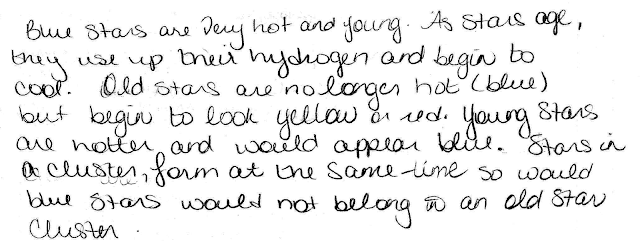 Blue Stars are Very hot and young. As Stars age,
they use up their hydrogen and begin to
cool. Old stars are no longer hot (blue)
but begin to look yellow or red. Young Stars
are hotter and would appear blue. Stars in
a cluster, form at the same-time so would
blue stars would not belong in an old star
cluster.